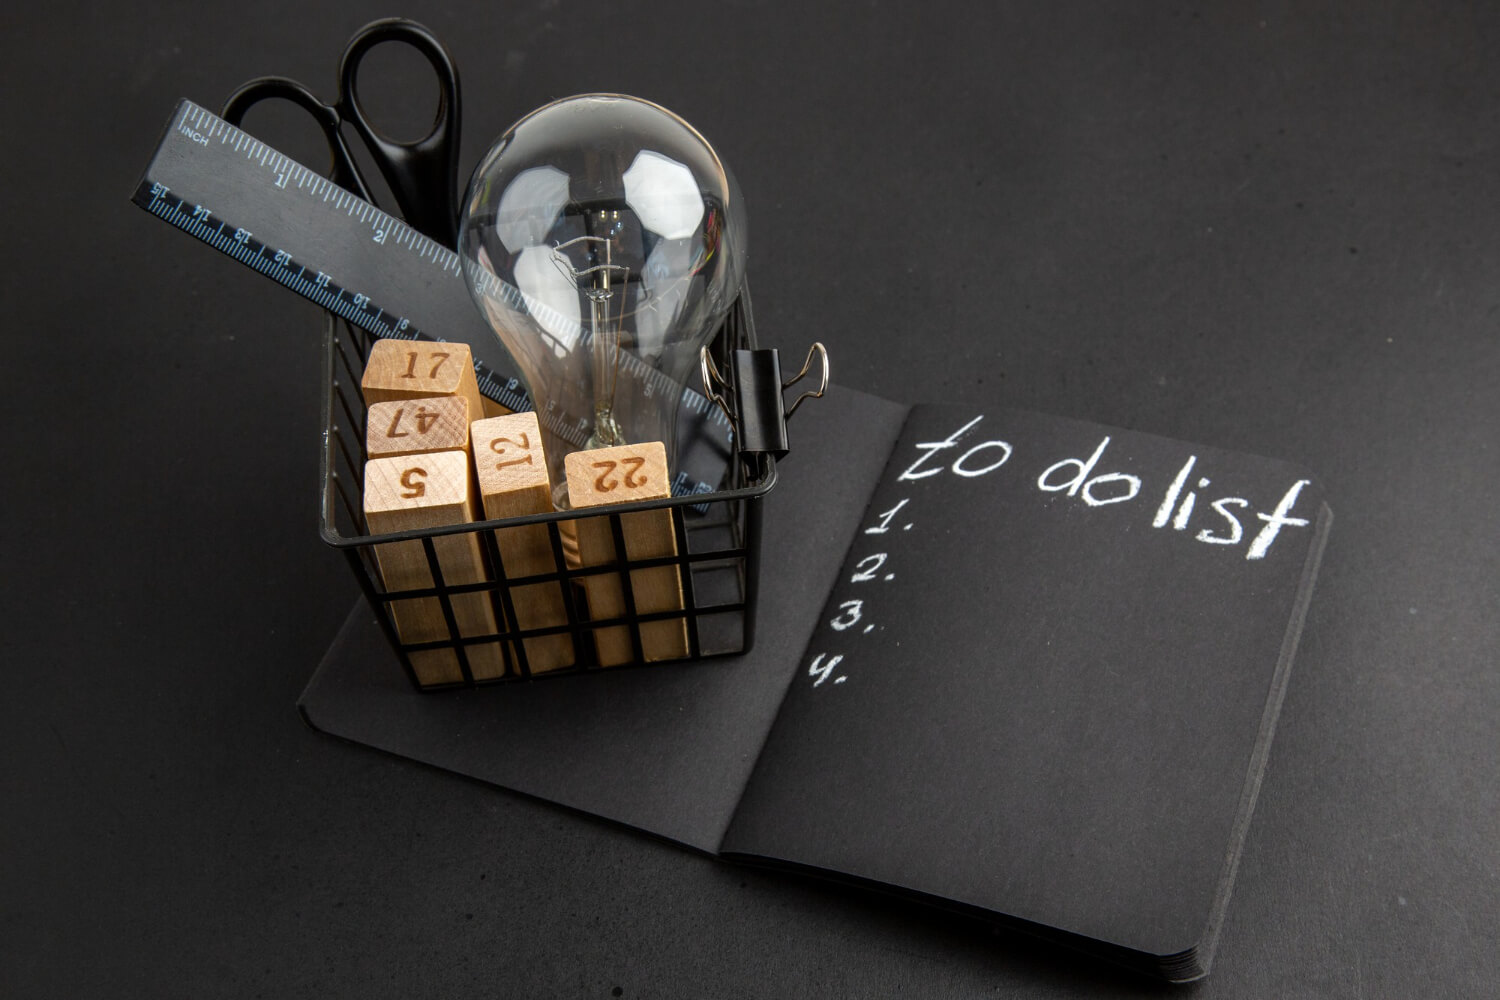 INCH
1
2
15 14 13 12 11 10 9
17
47
5
12
22
to do list
1.
2.
3.
4.